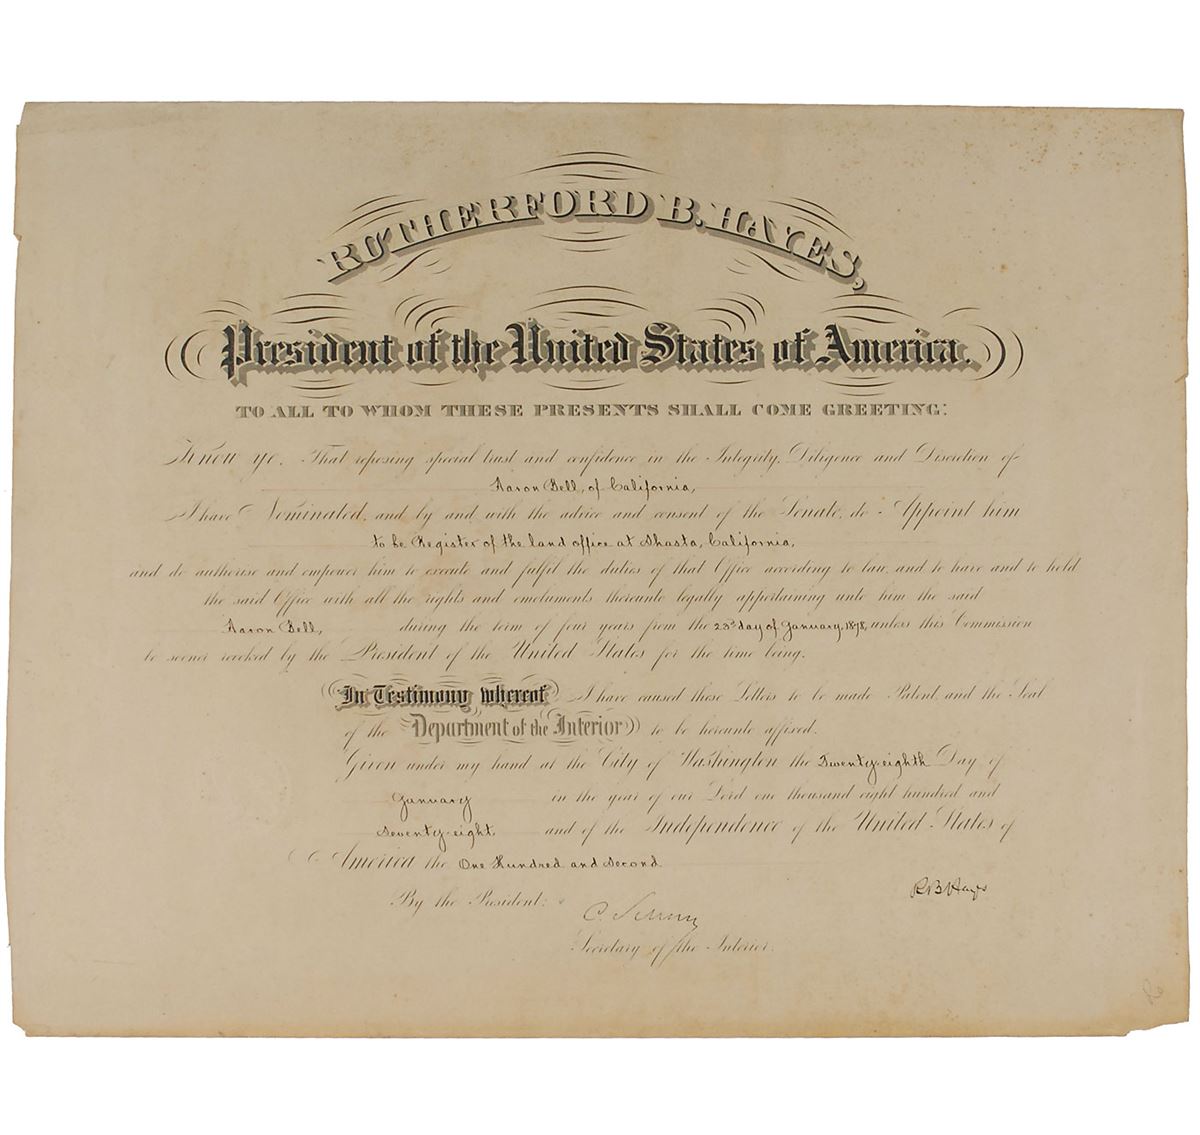 RUTHERFORD B. HAYES,
President of the United States of America.
TO ALL TO WHOM THESE PRESENTS SHALL COME GREETING:
Know ye, That reposing special trust and confidence in the Integrity, Diligence and Discretion of
Aaron Bell, of California,
I have Nominated, and by and with the advice and consent of the Senate, do Appoint him
to be Register of the land office at Shasta, California,
and do authorise and empower him to execute and fulfil the duties of that Office according to law, and to have and to hold
the said Office with all the rights and emoluments thereunto legally appertaining unto him the said
Aaron Bell, during the term of four years from the 23d day of January, 1878, unless this Commission
be sooner revoked by the President of the United States for the time being.
In Testimony whereof, I have caused these Letters to be made Patent, and the Seal
of the Department of the Interior to be hereunto affixed.
Given under my hand at the City of Washington the Twenty-eighth Day of
January in the year of our Lord one thousand eight hundred and
seventy-eight, and of the Independence of the United States of
America the One Hundred and Second
R B Hayes
By the President:
C. Schurz
Secretary of the Interior.